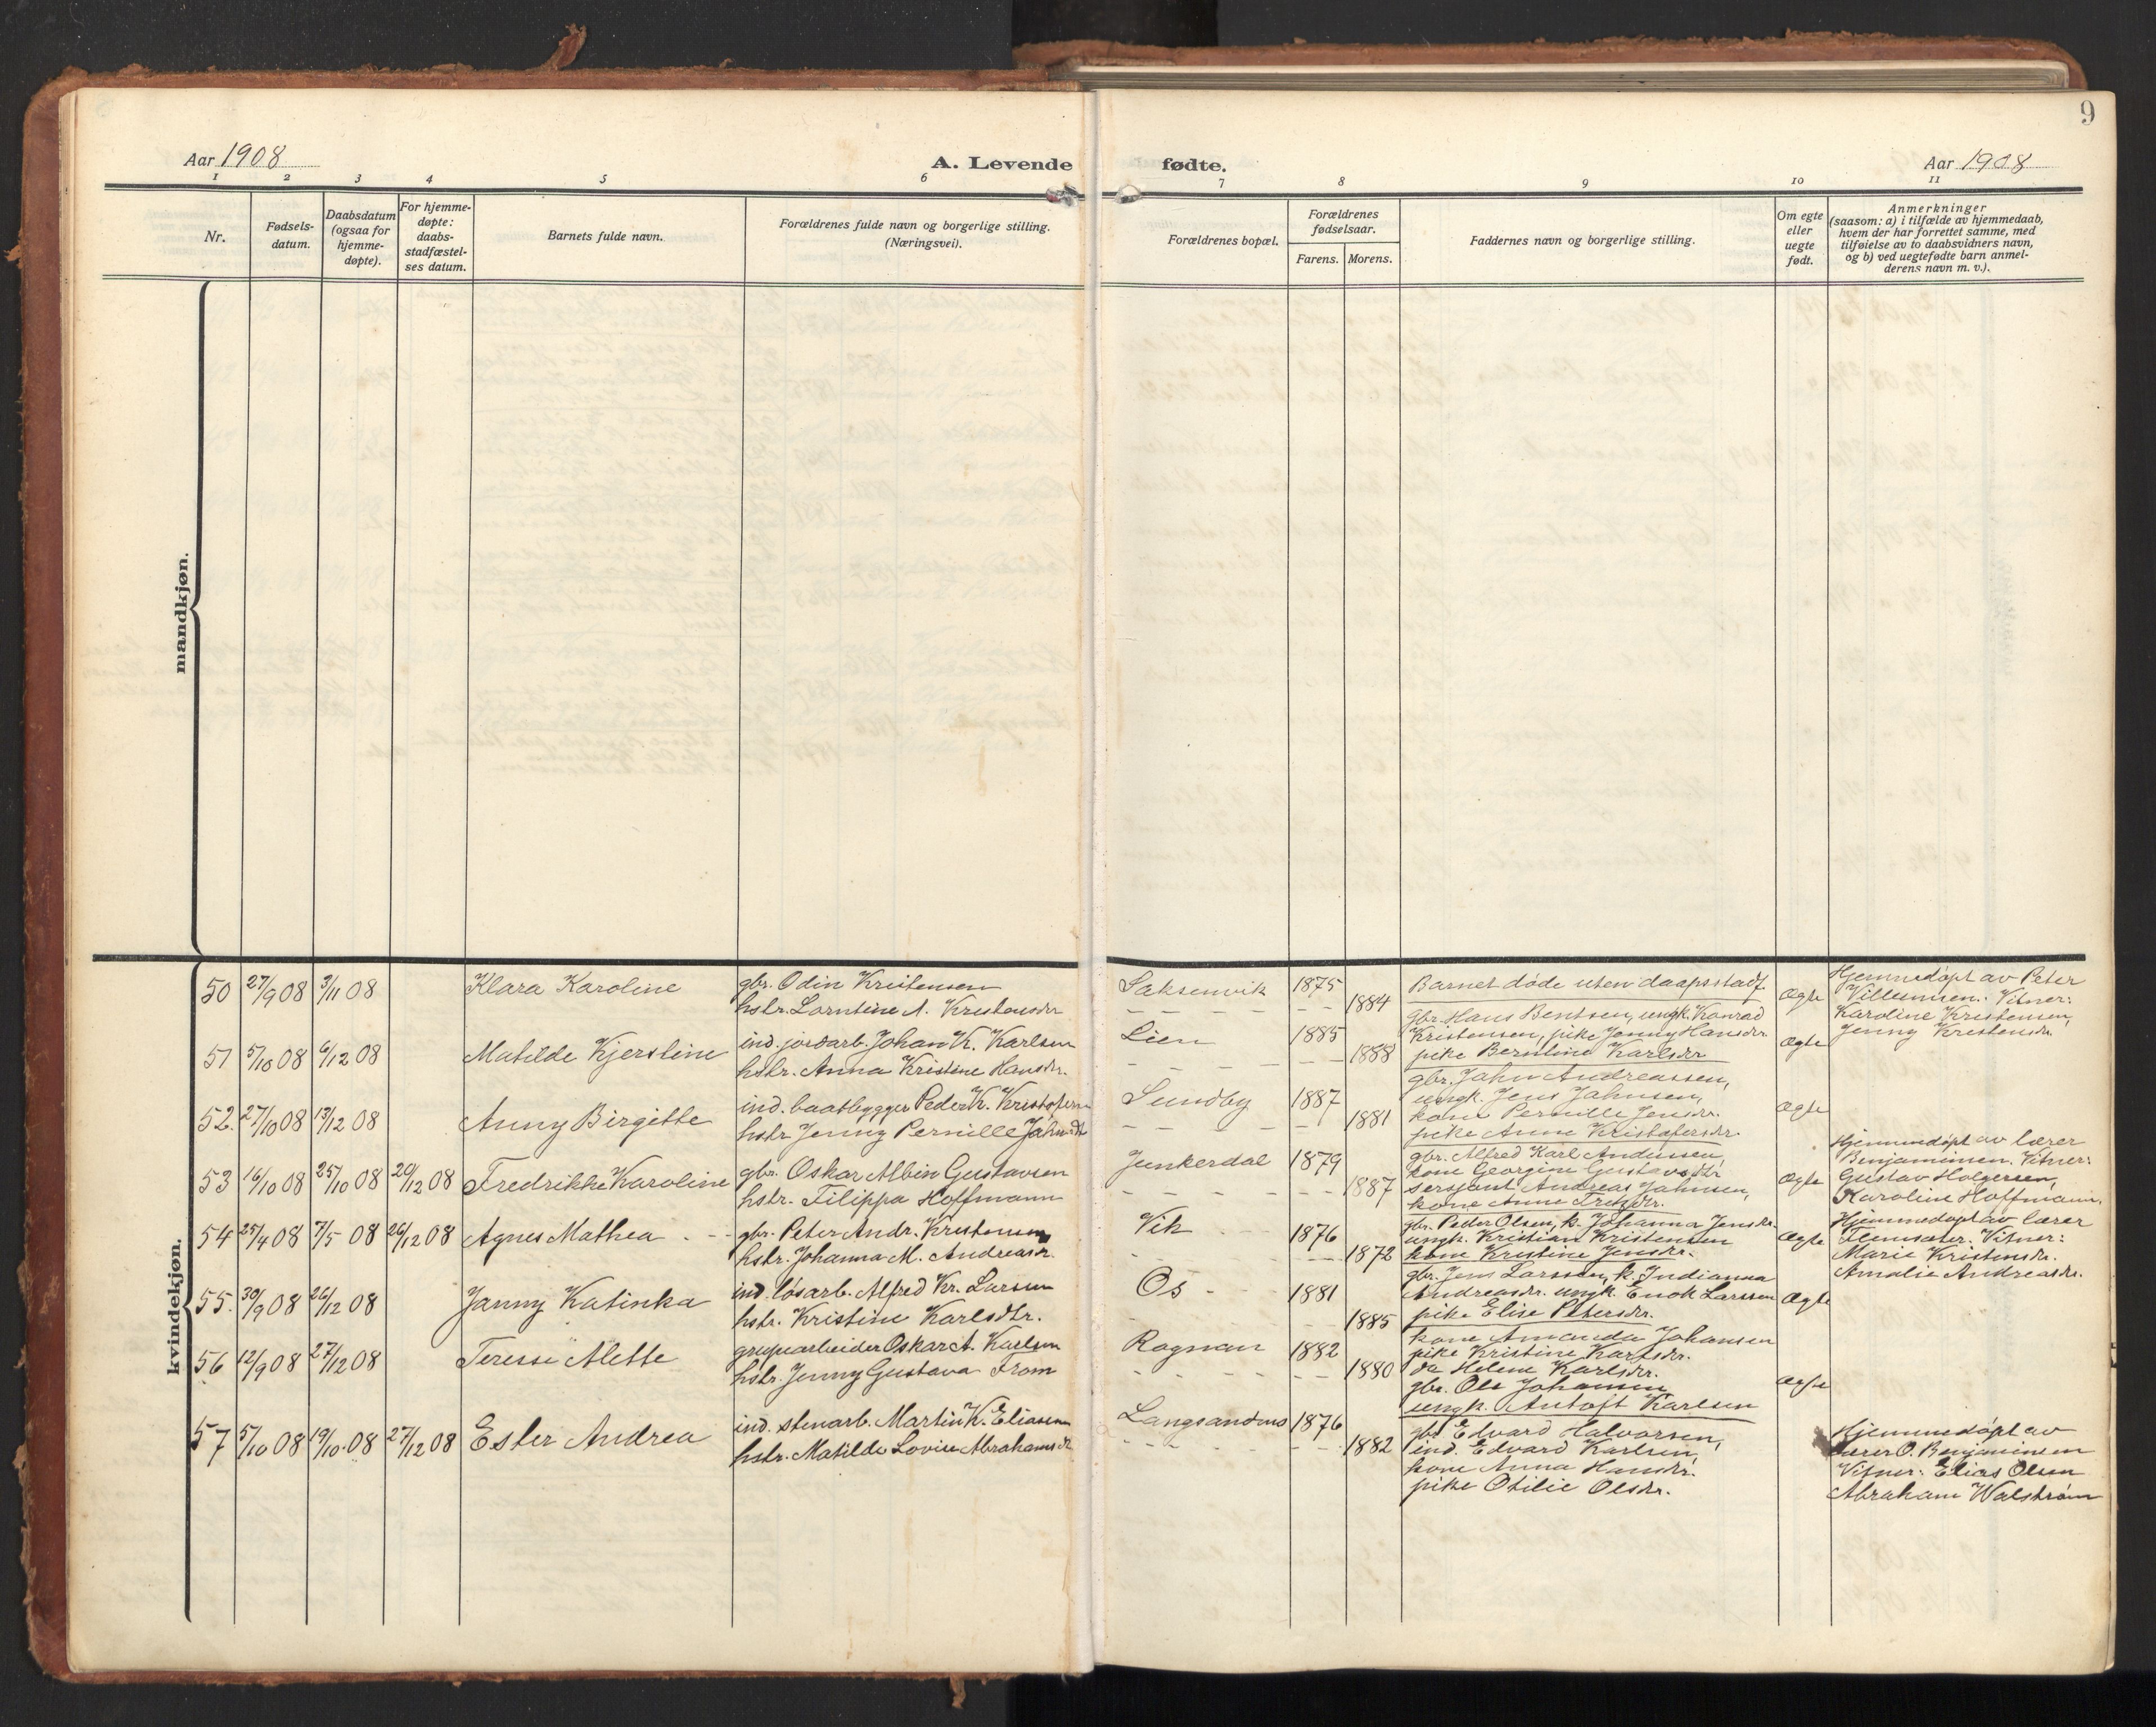 9
Aar 1908
A. Levende fødte.
Aar 1908
1 2 3 4 5 6 7 8 9 10 11
Nr.
Fødsels-
datum.
Daabsdatum
(ogsaa for
hjemme-
døpte).
For hjemme-
døpte:
daabs-
stadfæstel-
ses datum.
Barnets fulde navn.
Forældrenes fulde navn og borgerlige stilling.
(Næringsvei).
Forældrenes bopæl.
Forældrenes
fødselsaar.
Farens. Morens.
Faddernes navn og borgerlige stilling.
Om egte
eller
uegte
født.
Anmerkninger
(saasom: a) i tilfælde av hjemmedaab,
hvem der har forrettet samme, med
tilføielse av to daabsvidners navn,
og b) ved uegtefødte barn anmel-
derens navn m. v.).
mandkjøn.
kvindekjøn.
50 27/9 08 3/11 08 Klara Karoline
gbr. Odin Kristensen
hstr. Lorntine A. Kristensdr
Saksenvik 1875 1884
Barnet døde uten daapsstadf
Ægte
Hjemmedøpt av Peter
Villumsen. Vitner:
Karoline Kristensen,
Jenny Kristensdr.
51 5/10 08 6/12 08 Matilde Kjerstine
ind. jordarb. Johan K. Karlsen
hstr. Anna Kristine Hansdr.
Lien 1885 1888
gbr. Hans Bentsen, ungk. Konrad
Kristensen, pike Jenny Hansdr.
pike Berntine Karlsdr
Ægte
52. 27/10 08 13/12 08 Anny Birgitte
ind. baatbygger Peder K. Kristofersen
hstr Jenny Pernille Jahnsdtr
Sundby 1887 1881
gbr. Jahn Andreassen,
ungk. Jens Jahnsen,
kone Pernille Jensdr.
pike Anne Kristofersdr.
Ægte
53 16/10 08 25/10 08 20/12 08 Fredrikke Karoline
gbr. Oskar Albin Gustavsen
hstr. Filippa Hoffmann
Junkerdal 1879 1887
gbr. Alfred Karl Andersen,
kone Georgine Gustavsdtr
sersjant Andreas Jahnsen,
kone Anne Fretzdr.
Ægte
Hjemmedøpt av lærer
Benjaminsen. Vitner:
Gustav Holgersen,
Karoline Hoffmann.
54 25/4 08 7/5 08 26/12 08 Agnes Mathea
gbr. Peter Andr. Kristensen
hstr. Johanna M. Andreasdr.
Vik 1876 1872
gbr. Peder Olsen, k. Johanna Jensdr.
ungk. Kristian Kristensen
kone Kristine Jensdr.
Ægte
Hjemmedøpt av lærer
Vitner:
Marie Kristensdr.
Amalie Andreasdr.
55. 30/9 08 26/12 08 Janny Katinka
ind. løsarb. Alfred Kr. Larsen
hstr. Kristine Karlsdtr.
Os 1881 1885
gbr. Jens Larssen, k. Indianna
Andreasdr. ungk. Enok Larssen
pike Elise Petersdr.
Ægte
56 12/9 08 27/12 08 Teresie Alette
grupearbeider Oskar A. Karlsen
hstr. Jenny Gustava From
Rognan 1882 1880
kone Amanda Johansen
pike Kristine Karlsdr.
do Helene Karlsdr.
gbr. Ole Johansen
ungk. Antoft Karlsen
Ægte
57 5/10 08 19/10 08 27/12 08 Ester Andrea
ind. stenarb. Martin K. Eliasen
hstr. Matilde Lovise Abrahamsdr
Langsandmo 1876 1882
gbr Edvard Halvorsen,
ind. Edvard Karlsen,
kone Anna Hansdr.
pike Otilie Olsdr.
Hjemmedøpt av
lærer O. Benjaminsen
Vitner: Elias Olsen
Abraham Walstrøm